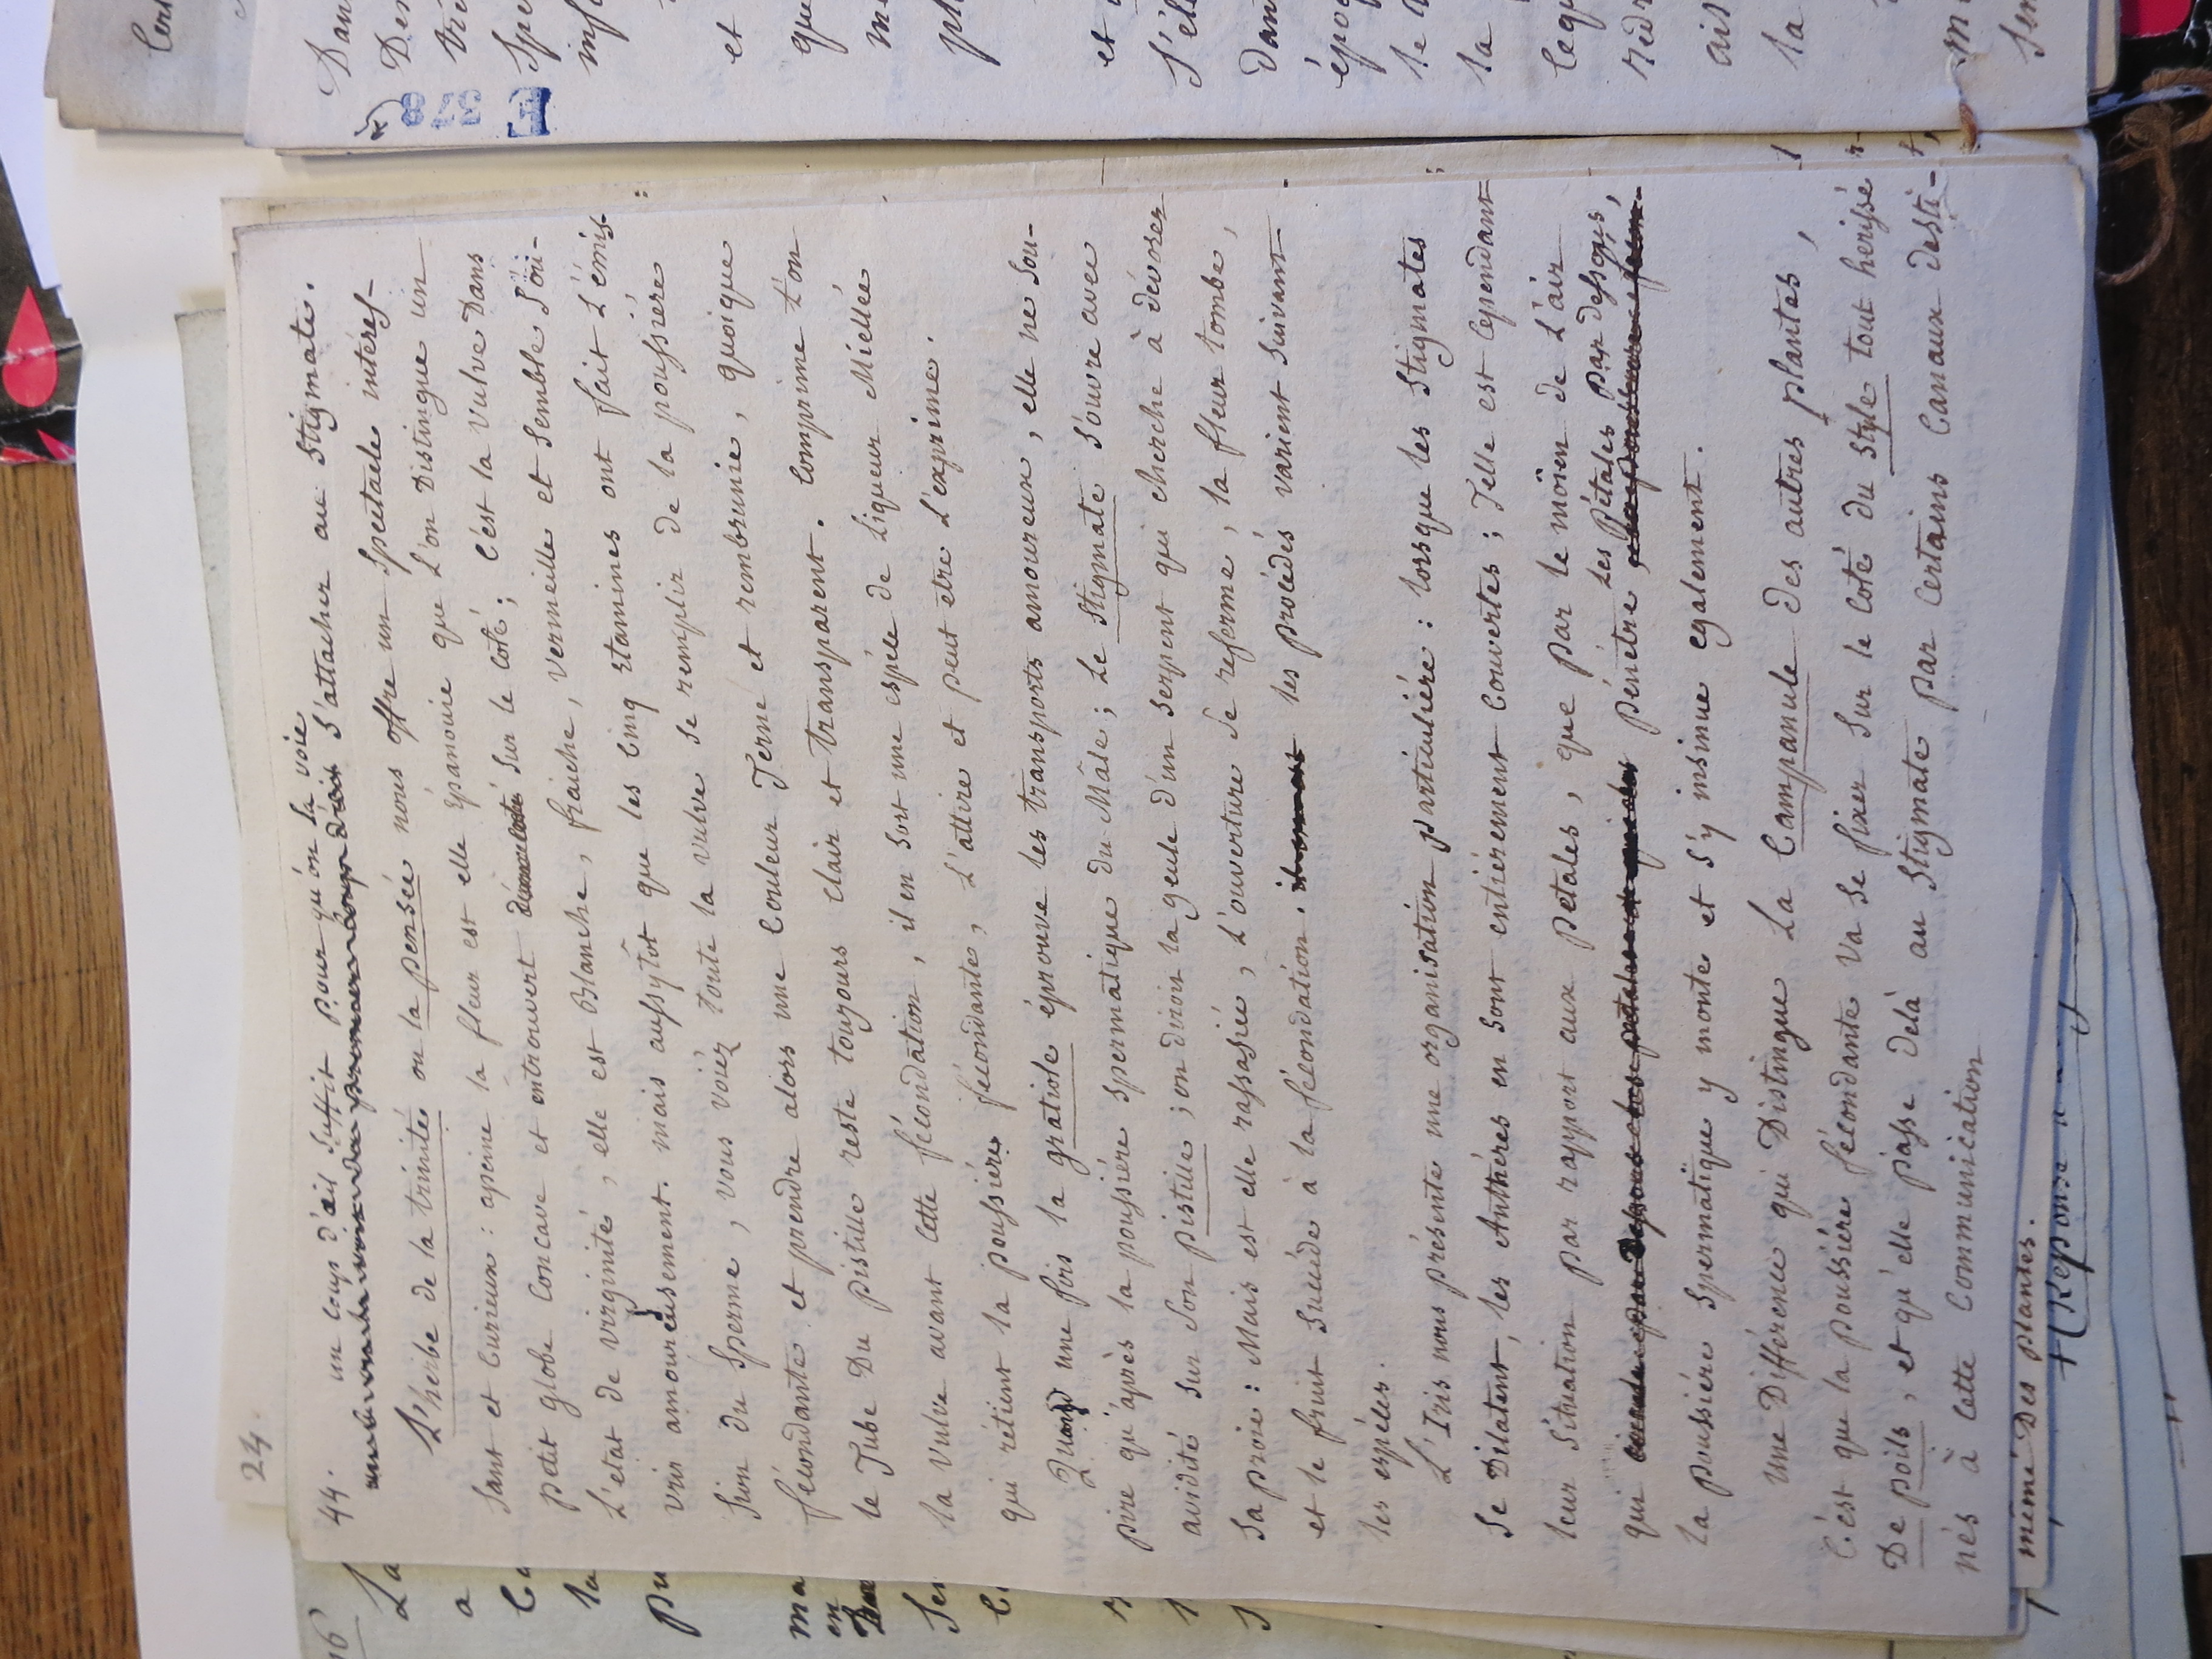 24.
44. un coup d'œil suffit pour qu'on la voie
s'attacher au stigmate.
L'herbe de la trinité ou la pensée nous offre un spectacle intéres-
sant et curieux : apeine la fleur est elle épanouie que l'on distingue un
petit globe concave et entrouvert sur le coté ; c'est la vulve dans
l'état de virginité, elle est blanche, fraiche, vermeille et semble s'ou-
vrir amoureusement. mais aussytôt que les cinq étamines ont fait l'émis-
sion du sperme, vous voiéz toute la vulve se remplir de la poussiére
fécondante et prendre alors une couleur terne et rembrunie, quoique
le tube du pistille reste toujours clair et transparent. Comprime t'on
la vulve avant cette fécondation, il en sort une espéce de liqueur miellée
qui rétient la poussiére fécondante, l'attire et peut etre l'exprime.
Quand une fois la gratiole éprouve les transports amoureux, elle ne sou-
pire qu'après la poussiére spermatique du Mâle ; le stigmate s'ouvre avec
avidité sur son pistille ; on diroit la geule d'un serpent qui cherche à dévorer
sa proie : Mais est elle rassasiée, l'ouverture se referme, la fleur tombe,
et le fruit succède à la fécondation. les procédés varient suivant
les espéces.
L'Iris nous présente une organisation particuliére : lorsque les stigmates
se dilatent, les Anthéres en sont entiérement couvertes ; Telle est cependant
leur situation par rapport aux petales, que par le moïen de l'air
les Pétales par dessous,
qui pénétre
la poussiére spermatique y monte et s'y insinue egalement.
une différence qui distingue la Campanule des autres plantes,
c'est que la poussiére fécondante va se fixer sur le coté du style tout herissé
De poils, et qu'elle passe delà au stigmate par certains canaux desti-
nés à cette communication
même des plantes.
+ (Réponse
E
37
8